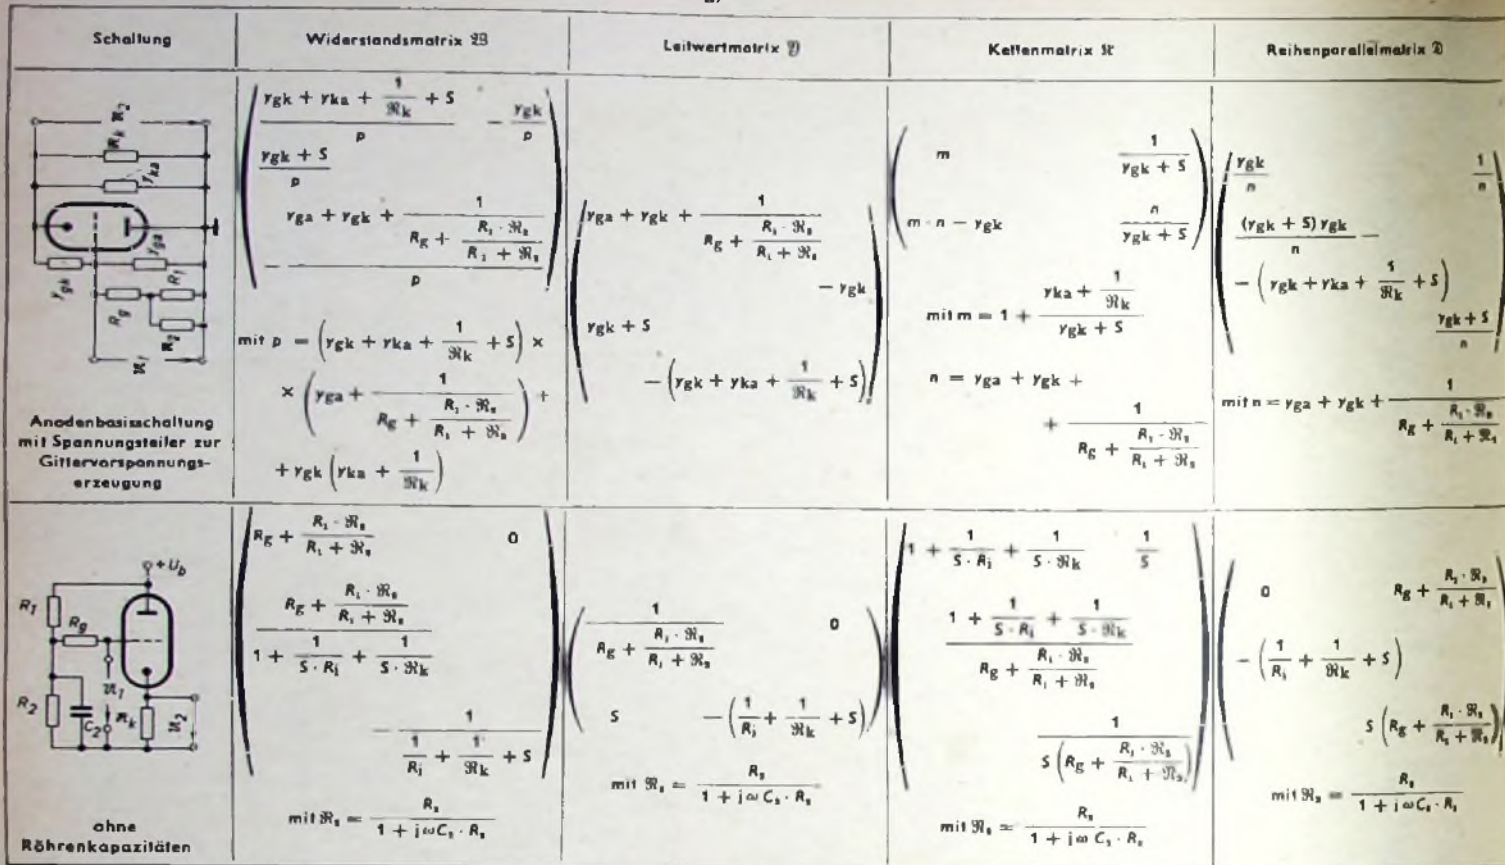 Schaltung
Widerstandsmatrix 𝔚
Leitwertmatrix 𝔜
Kettenmatrix 𝔎
Reihenparallelmatrix 𝔇
ℜk
yka
yga
ygk
R1
Rg
R2
Anodenbasisschaltung
mit Spannungsteiler zur
Gittervorspannungs-
erzeugung
ygk + yka + 1/ℜk + S / p    − ygk / p
ygk + S / p
− (yga + ygk + 1 / (Rg + R1 · ℜ2 / (R1 + ℜ2))) / p
mit p = (ygk + yka + 1/ℜk + S) ×
× (yga + 1 / (Rg + R1 · ℜ2 / (R1 + ℜ2))) +
+ ygk (yka + 1/ℜk)
yga + ygk + 1 / (Rg + R1 · ℜ2 / (R1 + ℜ2))
− ygk
ygk + S
− (ygk + yka + 1/ℜk + S)
m    1 / (ygk + S)
m · n − ygk    n / (ygk + S)
mit m = 1 + (yka + 1/ℜk) / (ygk + S)
n = yga + ygk +
+ 1 / (Rg + R1 · ℜ2 / (R1 + ℜ2))
ygk / n    1 / n
(ygk + S) ygk / n −
− (ygk + yka + 1/ℜk + S)
ygk + S / n
mit n = yga + ygk + 1 / (Rg + R1 · ℜ2 / (R1 + ℜ2))
+Ub
R1
Rg
R2
C2
ℜk
ohne
Röhrenkapazitäten
Rg + R1 · ℜ2 / (R1 + ℜ2)    0
(Rg + R1 · ℜ2 / (R1 + ℜ2)) / (1 + 1 / (S · Ri) + 1 / (S · ℜk))
− 1 / (1/Ri + 1/ℜk + S)
mit ℜ2 = R2 / (1 + jωC2 · R2)
1 / (Rg + R1 · ℜ2 / (R1 + ℜ2))    0
S    − (1/Ri + 1/ℜk + S)
mit ℜ2 = R2 / (1 + jωC2 · R2)
1 + 1 / (S · Ri) + 1 / (S · ℜk)    1 / S
(1 + 1 / (S · Ri) + 1 / (S · ℜk)) / (Rg + R1 · ℜ2 / (R1 + ℜ2))
1 / (S (Rg + R1 · ℜ2 / (R1 + ℜ2)))
mit ℜ2 = R2 / (1 + jω C2 · R2)
0    Rg + R1 · ℜ2 / (R1 + ℜ2)
− (1/Ri + 1/ℜk + S)
S (Rg + R1 · ℜ2 / (R1 + ℜ2))
mit ℜ2 = R2 / (1 + jωC2 · R2)